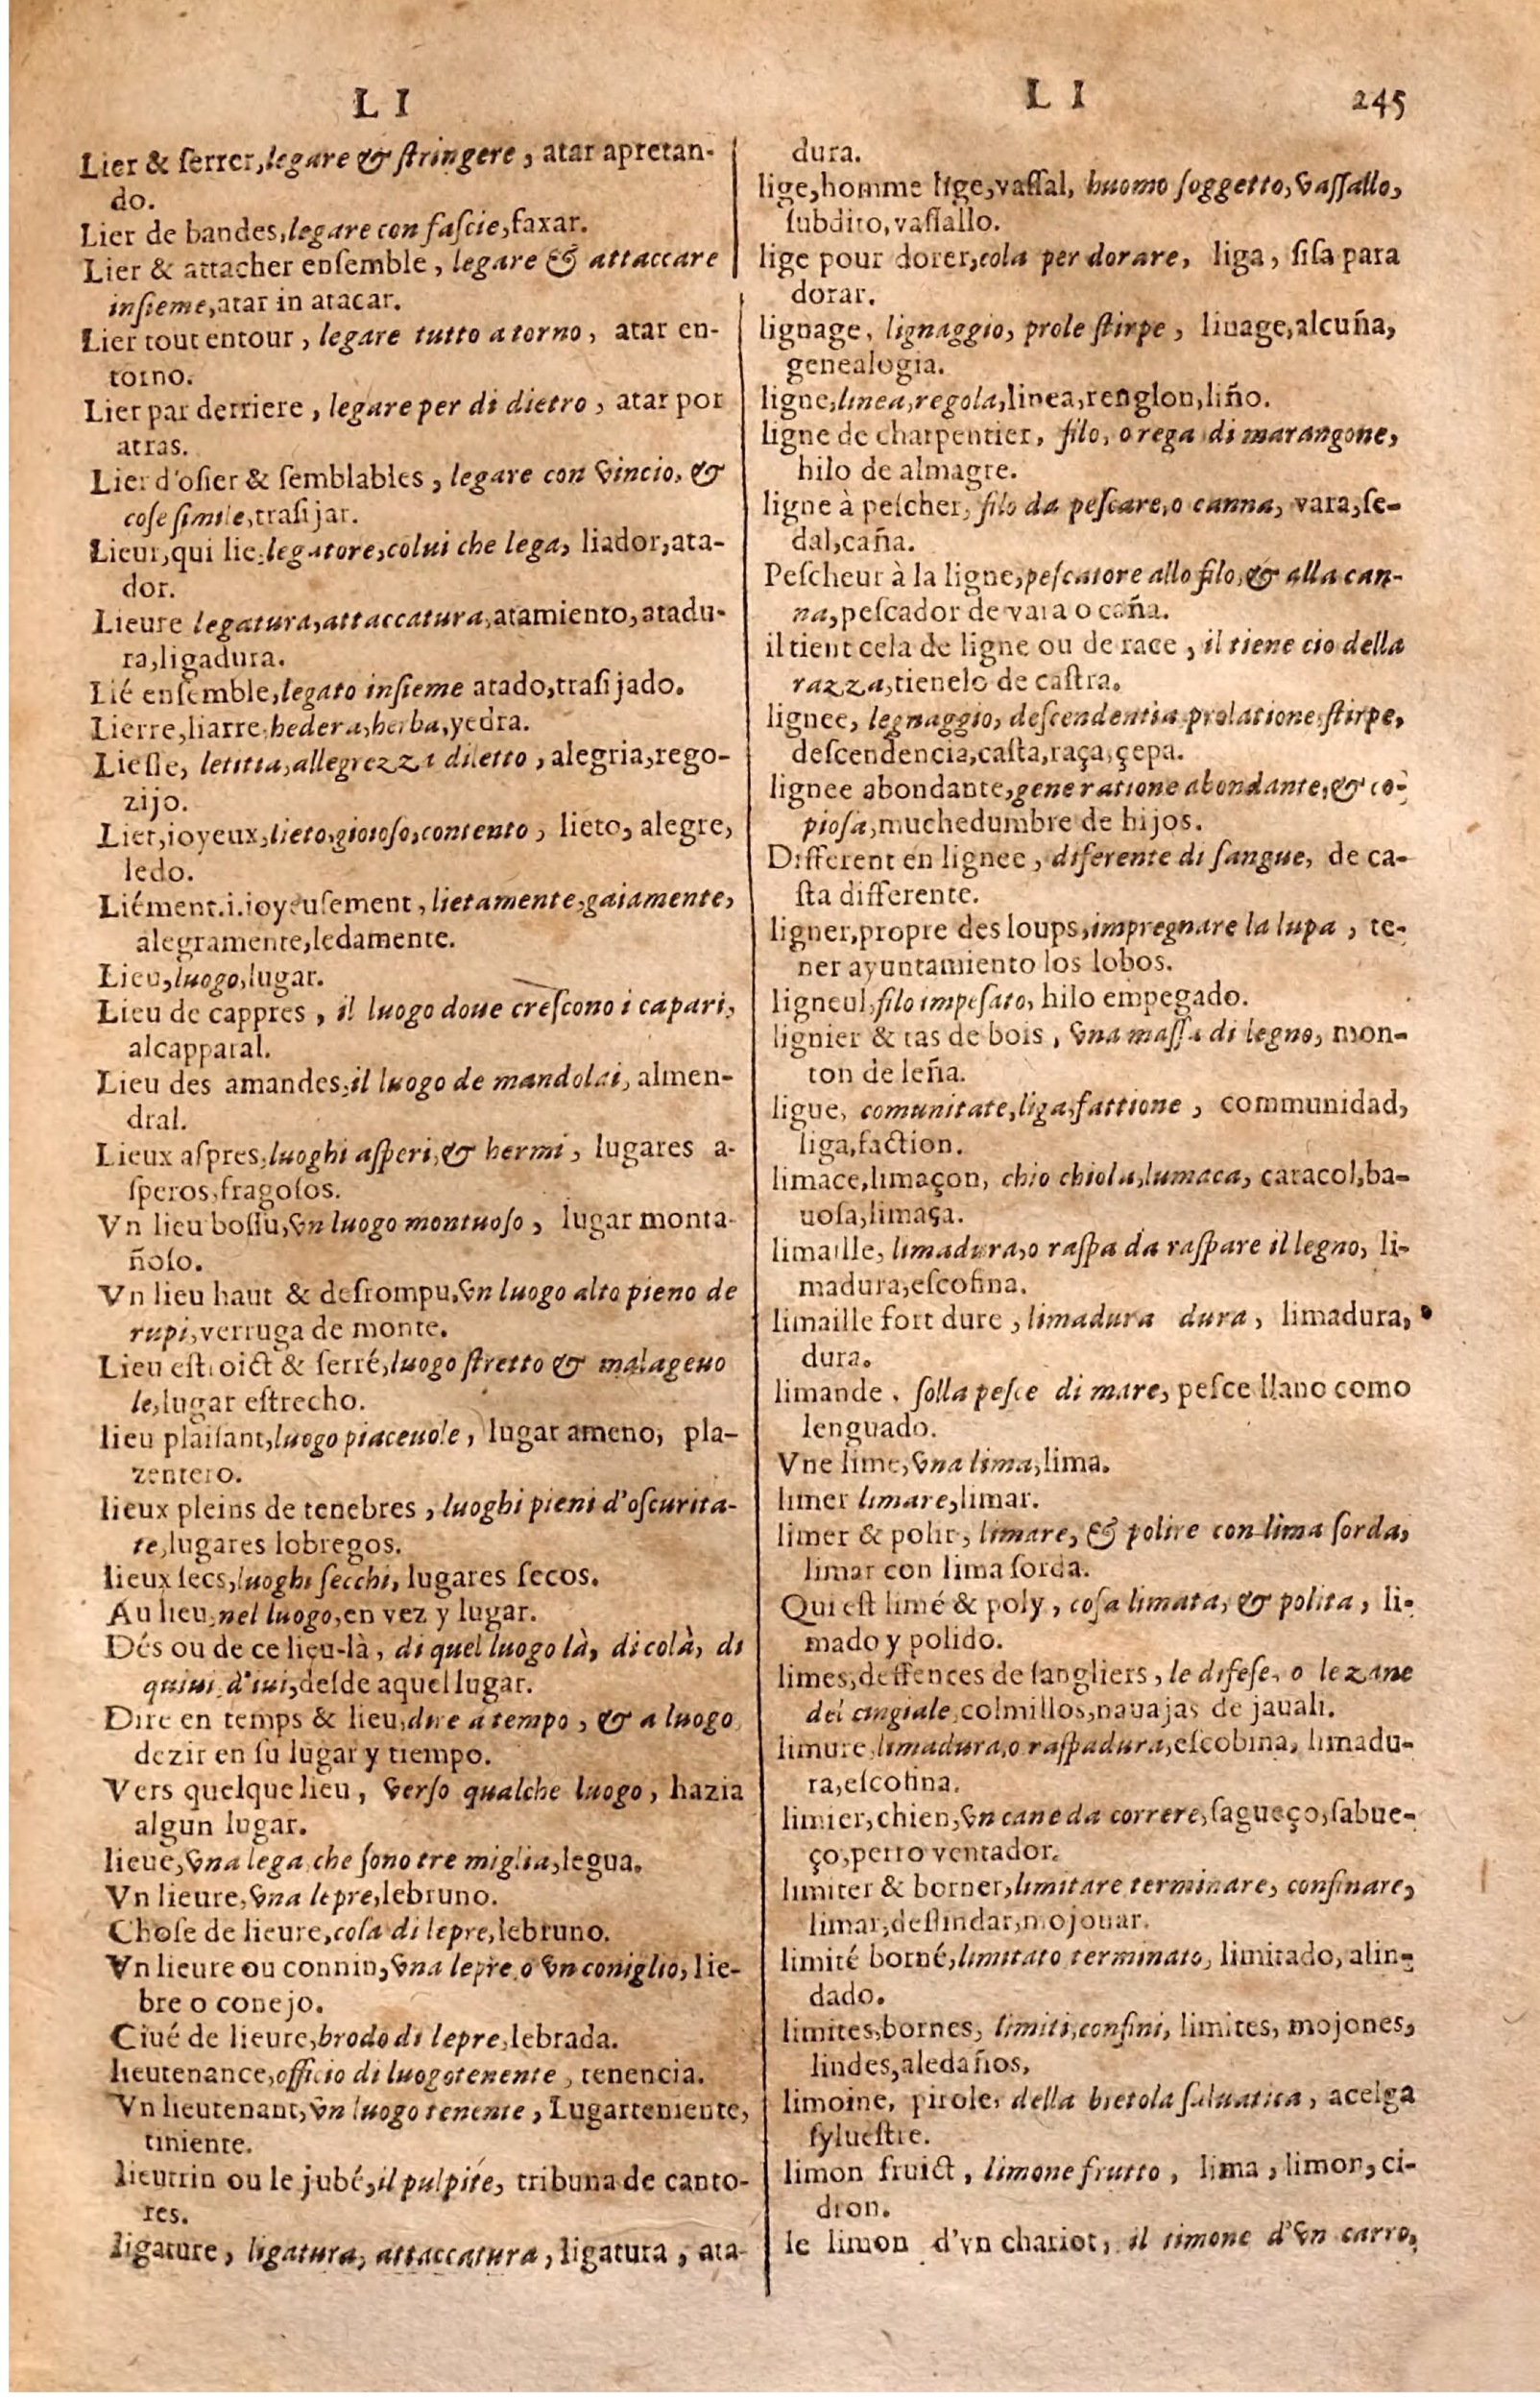 L I
Lier & ſerrer, legare & ſtringere, atar apretan-
do.
Lier de bandes, legare con faſcie, faxar.
Lier & attacher enſemble, legare & attaccare
inſieme, atar in atacar.
Lier tout entour, legare tutto a torno, atar en-
torno.
Lier par derriere, legare per di dietro, atar por
atras.
Lier d'oſier & ſemblables, legare con vincio, &
coſe ſimile, traſijar.
Lieur, qui lie, legatore, colui che lega, liador, ata-
dor.
Lieure legatura, attaccatura, atamiento, atadu-
ra, ligadura.
Lié enſemble, legato inſieme atado, traſijado.
Lierre, liarre, hedera, herba, yedra.
Lieſſe, letitia, allegrezza diletto, alegria, rego-
zijo.
Liet, ioyeux, lieto, gioioſo, contento, lieto, alegre,
ledo.
Liément.i.ioyeuſement, lietamente, gaiamente,
alegramente, ledamente.
Lieu, luogo, lugar.
Lieu de cappres, il luogo doue creſcono i capari,
alcapparal.
Lieu des amandes, il luogo de mandolai, almen-
dral.
Lieux aſpres, luoghi aſperi, & hermi, lugares a-
ſperos, fragoſos.
Vn lieu boſſu, vn luogo montuoſo, lugar monta-
ñoſo.
Vn lieu haut & deſrompu, vn luogo alto pieno de
rupi, verruga de monte.
Lieu eſtroict & ſerré, luogo ſtretto & malageuo
le, lugar eſtrecho.
lieu plaiſant, luogo piaceuole, lugar ameno, pla-
zentero.
lieux pleins de tenebres, luoghi pieni d'oſcurita-
te, lugares lobregos.
lieux ſecs, luoghi ſecchi, lugares ſecos.
Au lieu, nel luogo, en vez y lugar.
Dés ou de ce lieu-là, di quel luogo là, di colà, di
quiui, d'iui, deſde aquel lugar.
Dire en temps & lieu, dire a tempo, & a luogo,
dezir en ſu lugar y tiempo.
Vers quelque lieu, verſo qualche luogo, hazia
algun lugar.
lieue, vna lega che ſono tre miglia, legua.
Vn lieure, vna lepre, lebruno.
Choſe de lieure, coſa di lepre, lebruno.
Vn lieure ou connin, vna lepre o vn coniglio, lie-
bre o conejo.
Ciué de lieure, brodo di lepre, lebrada.
lieutenance, officio di luogotenente, tenencia.
Vn lieutenant, vn luogo tenente, Lugarteniente,
tiniente.
lieutrin ou le jubé, il pulpite, tribuna de canto-
res.
ligature, ligatura, attaccatura, ligatura, ata-
L I 245
dura.
lige, homme lige, vaſſal, huomo ſoggetto, vaſſallo,
ſubdito, vaſſallo.
lige pour dorer, cola per dorare, liga, ſiſa para
dorar.
lignage, lignaggio, prole ſtirpe, linage, alcuña,
genealogia.
ligne, linea, regola, linea, renglon, liño.
ligne de charpentier, filo, o rega di marangone,
hilo de almagre.
ligne à peſcher, filo da peſcare, o canna, vara, ſe-
dal, caña.
Peſcheur à la ligne, peſcatore allo filo, & alla can-
na, peſcador de vara o caña.
il tient cela de ligne ou de race, il tiene cio della
razza, tienelo de caſtra.
lignee, legnaggio, deſcendentia prolatione ſtirpe,
deſcendencia, caſta, raça, çepa.
lignee abondante, generatione abondante, & co-
pioſa, muchedumbre de hijos.
Different en lignee, diferente di ſangue, de ca-
ſta differente.
ligner, propre des loups, impregnare la lupa, te-
ner ayuntamiento los lobos.
ligneul, filo impeſato, hilo empegado.
lignier & tas de bois, vna maſſa di legno, mon-
ton de leña.
ligue, comunitate, liga, fattione, communidad,
liga, faction.
limace, limaçon, chio chiola, lumaca, caracol, ba-
uoſa, limaça.
limaille, limadura, o raſpa da raſpare il legno, li-
madura, eſcofina.
limaille fort dure, limadura dura, limadura,
dura.
limande, ſolla peſce di mare, peſce llano como
lenguado.
Vne lime, vna lima, lima.
limer limare, limar.
limer & polir, limare, & polire con lima ſorda,
limar con lima ſorda.
Qui eſt limé & poly, coſa limata, & polita, li-
mado y polido.
limes, deffences de ſangliers, le difeſe, o le zane
del cingiale, colmillos, nauajas de jauali.
limure, limadura, o raſpadura, eſcobina, limadu-
ra, eſcofina.
limier, chien, vn cane da correre, ſagueço, ſabue-
ço, perro ventador.
limiter & borner, limitare terminare, confinare,
limar, deſlindar, mojonar.
limité borné, limitato terminato, limitado, alin-
dado.
limites, bornes, limiti, confini, limites, mojones,
lindes, aledaños,
limoine, pirole, della bietola ſaluatica, acelga
ſylueſtre.
limon fruict, limone frutto, lima, limon, ci-
dron.
le limon d'vn chariot, il timone d'vn carro,